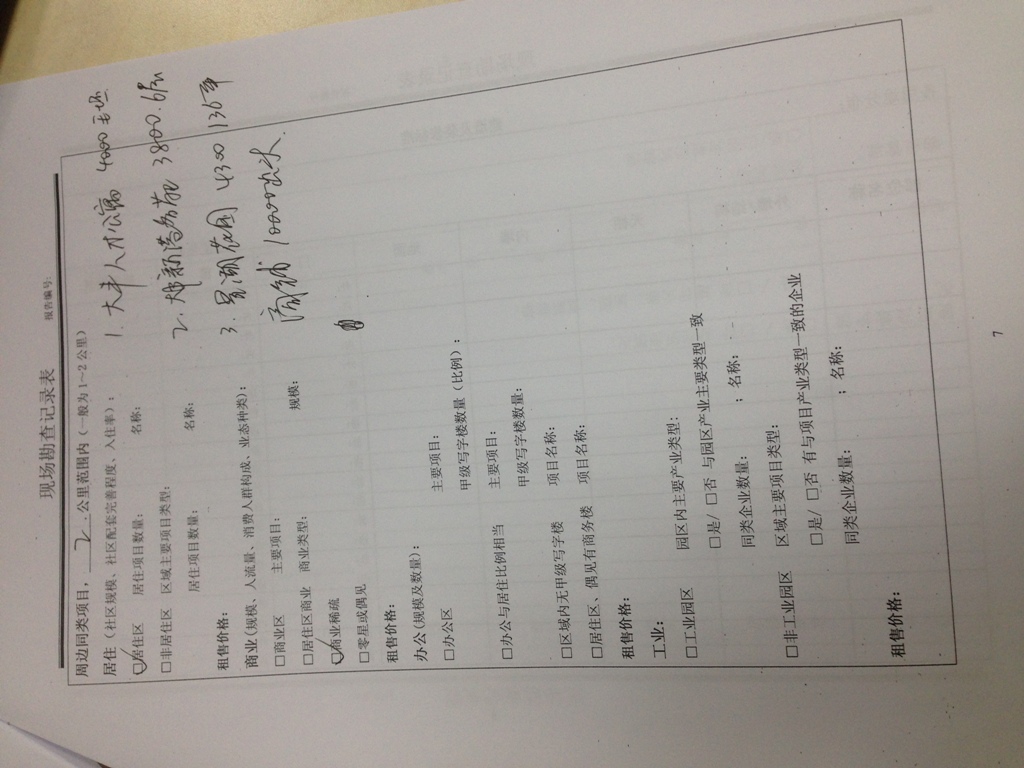 现场勘查记录表
报告编号:
周边同类项目, 2 公里范围内(一般为1~2公里)
居住(社区规模、社区配套完善程度、入住率):
☑居住区 居住项目数量: 名称:
1. 大丰人才公寓 4000
□非居住区 区域主要项目类型: 名称:
2. 3800.
居住项目数量:
3. 花园 4300
租售价格:
商业(规模、人流量、消费人群构成、业态种类):
商铺 10000
□商业区 主要项目: 规模:
□居住区商业 商业类型:
☑商业稀疏
□零星或偶见
租售价格:
办公(规模及数量):
□办公区 主要项目:
甲级写字楼数量(比例):
□办公与居住比例相当 主要项目:
甲级写字楼数量:
□区域内无甲级写字楼 项目名称:
□居住区、偶见有商务楼 项目名称:
租售价格:
工业:
□工业园区 园区内主要产业类型:
□是/□否 与园区产业主要类型一致
同类企业数量: ; 名称:
□非工业园区 区域主要项目类型:
□是/□否 有与项目产业类型一致的企业
同类企业数量: ; 名称:
租售价格:
7